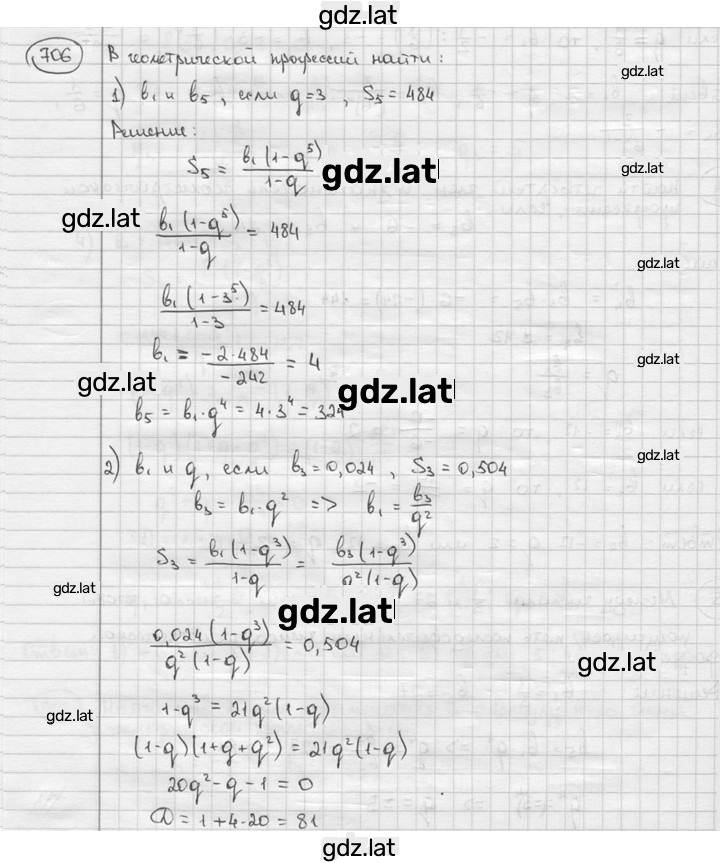 gdz.lat
706 В геометрической прогрессий найти:
1) b₁ и b₅, если q=3, S₅ = 484
gdz.lat
Решение:
S₅ = b₁(1-q⁵)/1-q
gdz.lat
gdz.lat
gdz.lat
b₁(1-q⁵)/1-q = 484
gdz.lat
b₁(1-3⁵)/1-3 = 484
b₁ = -2·484/-242 = 4
gdz.lat
gdz.lat
gdz.lat
b₅ = b₁·q⁴ = 4·3⁴ = 324
2) b₁ и q, если b₃ = 0,024, S₃ = 0,504
gdz.lat
b₃ = b₁·q² => b₁ = b₃/q²
S₃ = b₁(1-q³)/1-q = b₃(1-q³)/q²(1-q)
gdz.lat
gdz.lat
0,024(1-q³)/q²(1-q) = 0,504
gdz.lat
1-q³ = 21q²(1-q)
gdz.lat
(1-q)(1+q+q²) = 21q²(1-q)
20q²-q-1 = 0
D = 1+4·20 = 81
gdz.lat